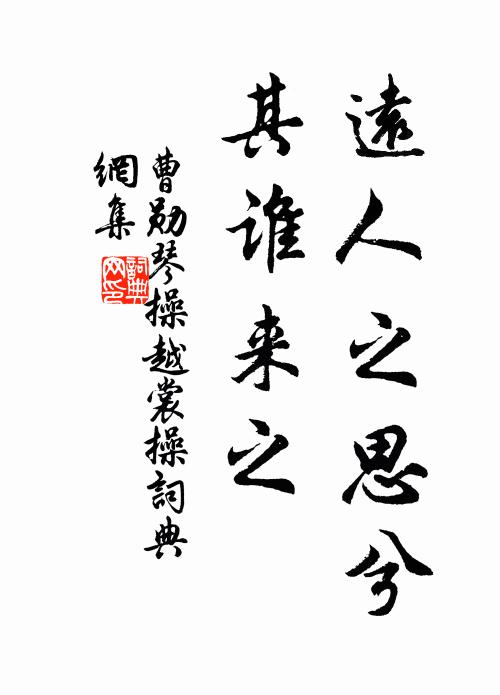 遠人之思兮
其誰来之
曹勋琴操越裳操詞典
網集
詞典
网印